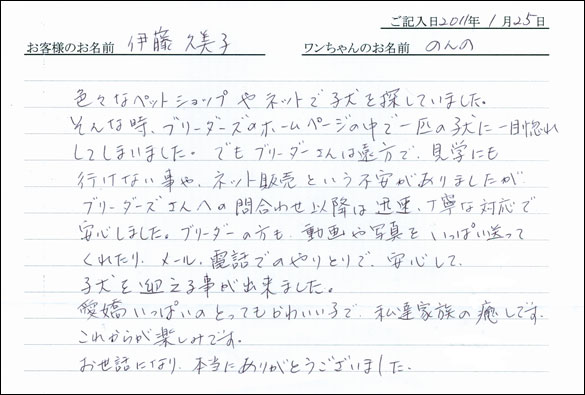 ご記入日2011年1月25日
お客様のお名前 伊藤 久美子 ワンちゃんのお名前 のんの
色々なペットショップやネットで子犬を探していました。
そんな時、ブリーダーズのホームページの中で一匹の子に一目惚れ
してしまいました。でもブリーダーさんは遠方で、見学にも
行けない事や、ネット販売という不安がありましたが
ブリーダーズさんへの問合わせ以降は迅速、丁寧な対応で
安心しました。ブリーダーの方も、動画や写真をいっぱい送って
くれたり、メール、電話でのやりとりで、安心して、
子犬を迎える事が出来ました。
愛嬌いっぱいのとってもかわいい子で、私達家族の癒しです。
これからが楽しみです。
お世話になり、本当にありがとうございました。